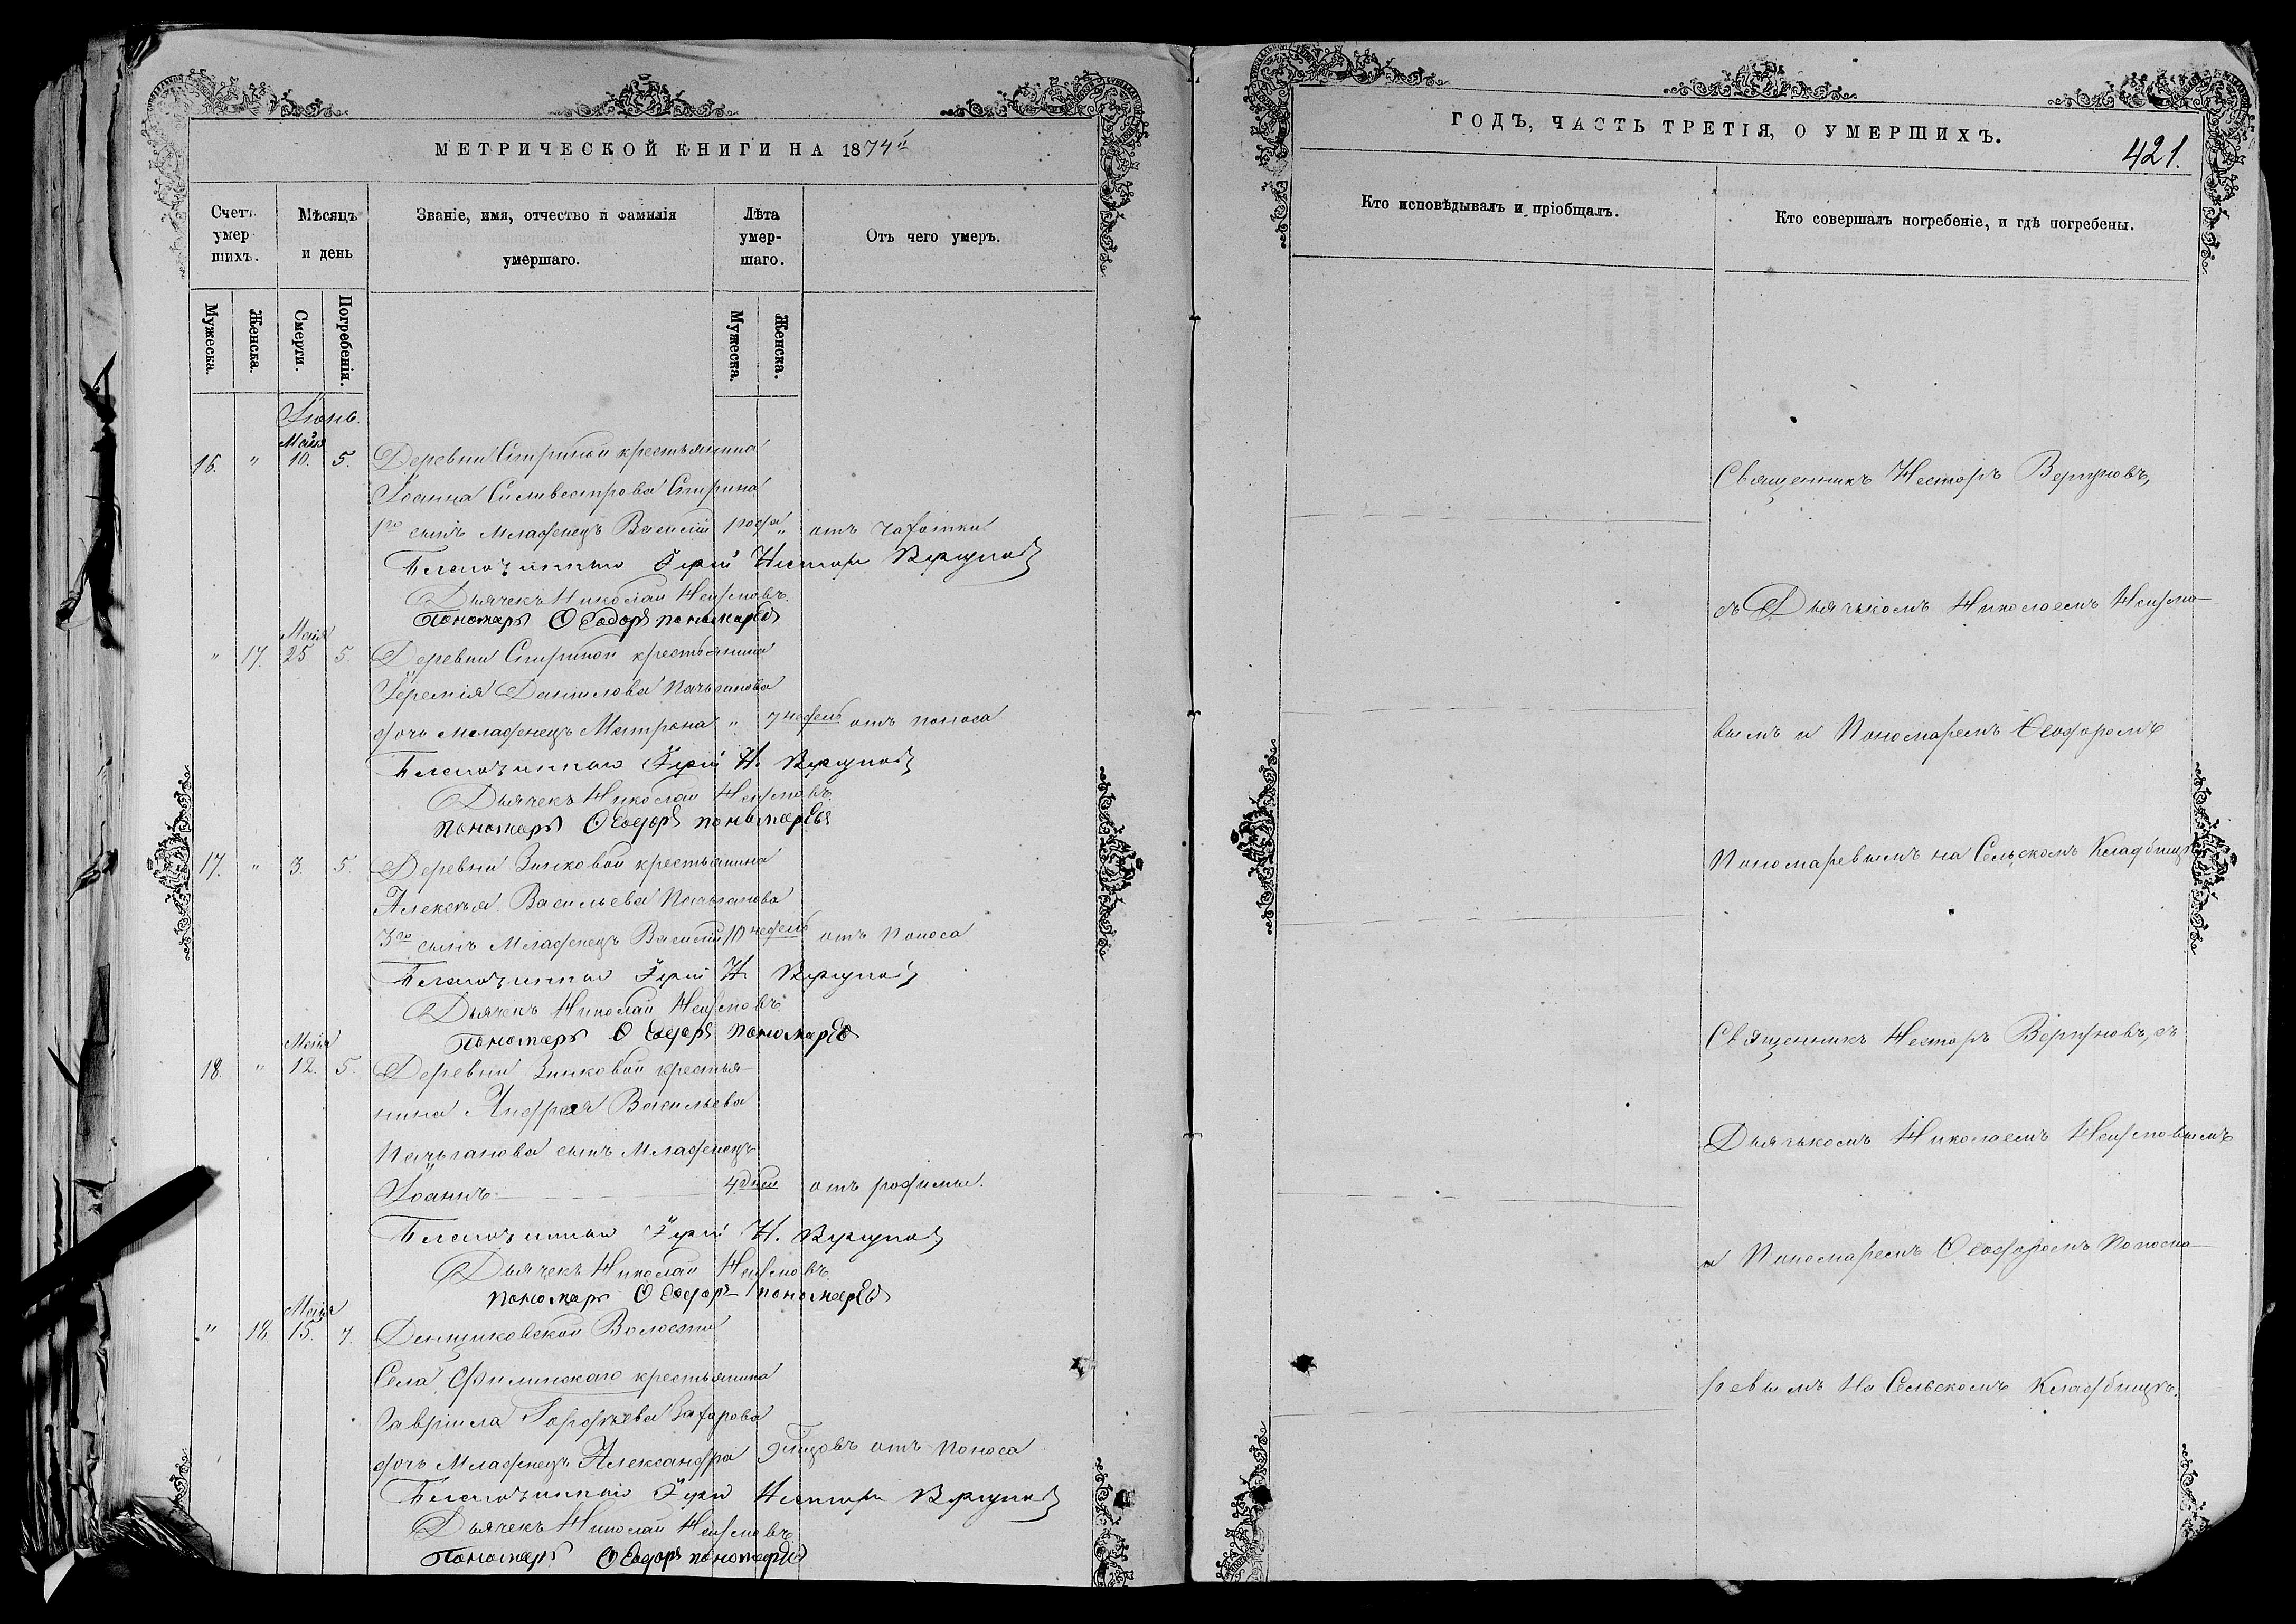 МЕТРИЧЕСКОЙ КНИГИ НА 1874й
Счетъ умерших.
Мѣсяцъ и день
Званіе, имя, отчество и фамилія умершаго.
Лѣта умершаго.
Отъ чего умеръ.
Мужеска.
Женска.
Смерти.
Погребенія.
Мужеска.
Женска.
Іюнь.
Маія
16. " 10. 5. Деревни Спириной крестьянина
Іоанна Сильвестрова Спирина
1го сынъ младенецъ Василій 1 года " отъ чахотки
Благочинный Іерей Несторъ Вергуновъ
Дьячекъ Николай Неуглмовъ
Пономарь Ѳеодоръ Пономаревъ
Маія
" 17. 25. 5. Деревни Спириной крестьянина
Іереміи Данилова Пачьганова
дочь младенецъ Матрона " 7 недель отъ поноса
Благочинный Іерей Н. Вергуновъ
Дьячекъ Николай
Пономарь Ѳеодоръ Пономаревъ
17. " 3. 5. Деревни Зинковой крестьянина
Алексѣя Васильева Пачьганова
3го сынъ младенецъ Василій 10 недель отъ поноса
Благочинный Іерей Н. Вергуновъ
Дьячекъ Николай
Пономарь Ѳеодоръ Пономаревъ
Маія
18. " 12. 5. Деревни Зинковой крестья-
нина Андрея Васильева
Пачьганова сынъ младенецъ
Іоаннъ 4 дней отъ родимы.
Благочинный Іерей Н. Вергуновъ
Дьячекъ Николай
Пономарь Ѳеодоръ Пономаревъ
Маія
" 18. 15. 7. Денщиковской Волости
Села Филинскаго крестьянина
Гавріила Гордѣева Захарова
дочь младенецъ Александра 9 месяцовъ отъ поноса
Благочинный Іерей Несторъ Вергуновъ
Дьячекъ Николай
Пономарь Ѳеодоръ Пономаревъ
ГОДЪ, ЧАСТЬ ТРЕТІЯ, О УМЕРШИХЪ.
421.
Кто исповѣдывалъ и пріобщалъ.
Кто совершалъ погребеніе, и гдѣ погребены.
Священникъ Несторъ Вергуновъ,
съ Дьячькомъ Николаемъ
вымъ и Пономаремъ Ѳеодоромъ
Пономаревымъ на Сельскомъ Кладбищѣ
Священникъ Несторъ Вергуновъ, съ
Дьячькомъ Николаемъ
и Пономаремъ Ѳеодоромъ Понома-
ревымъ на Сельскомъ Кладбищѣ.